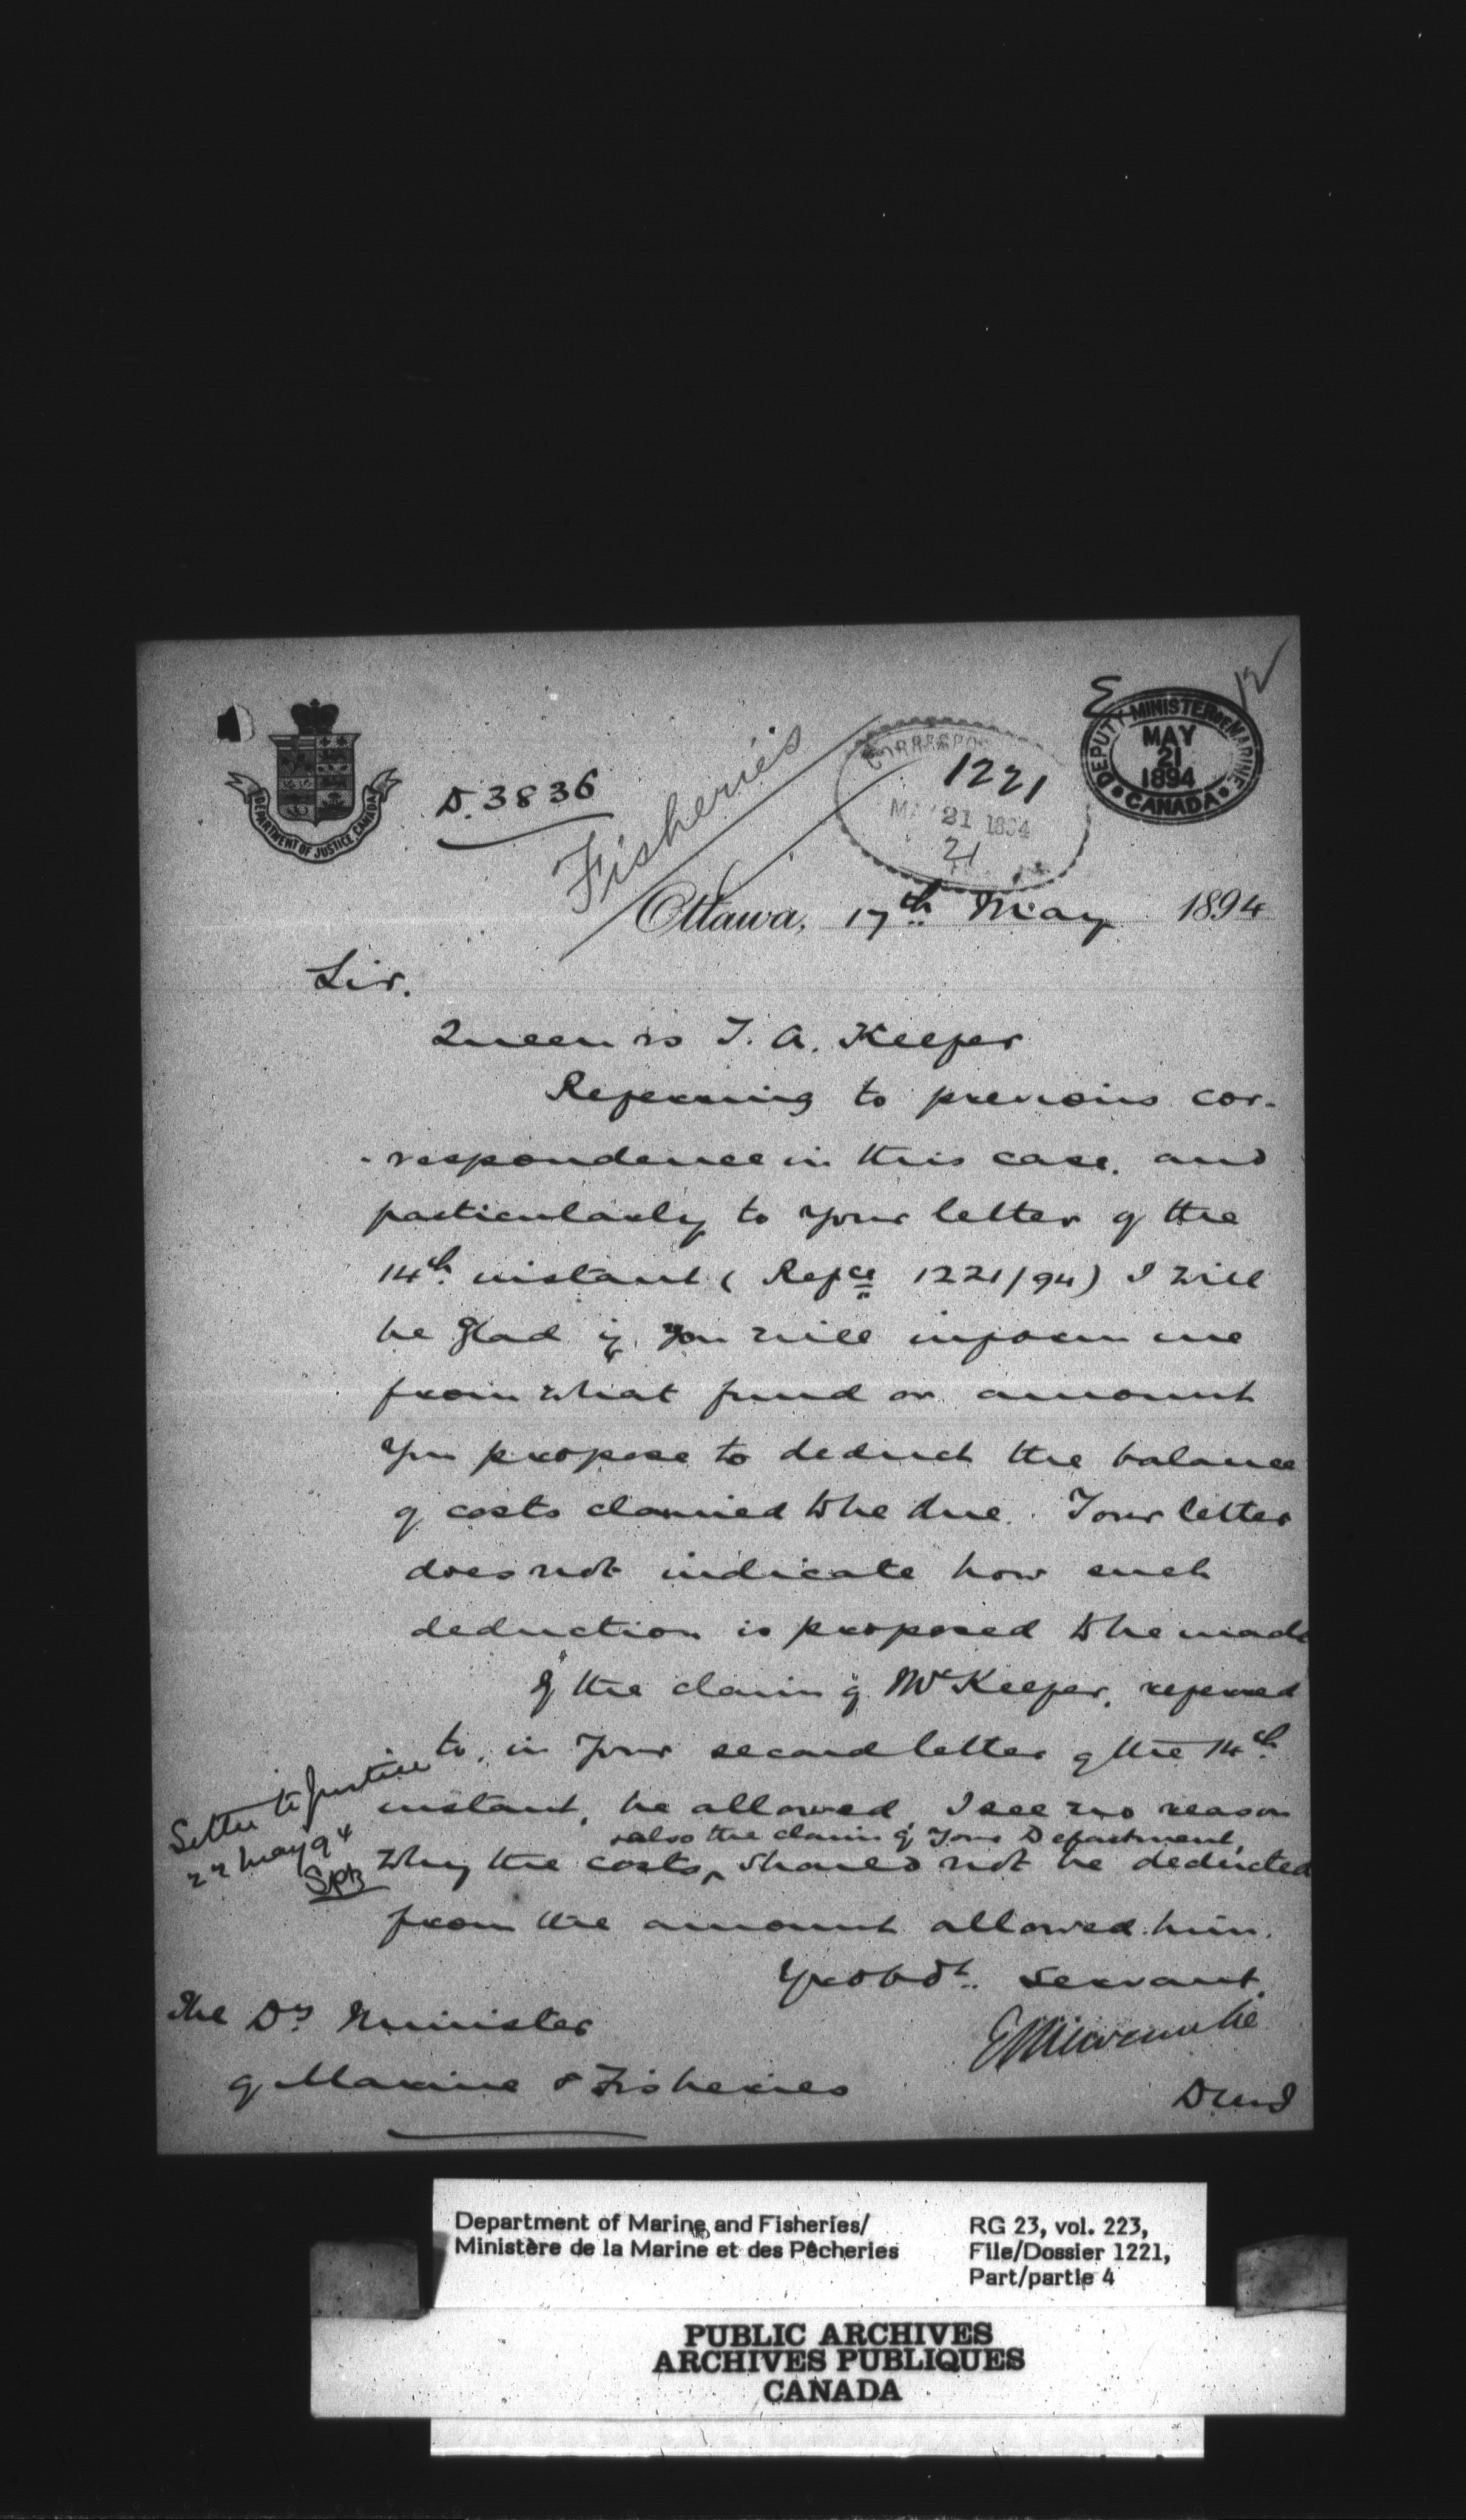 DEPARTMENT OF JUSTICE, CANADA
D. 3836
Fisheries
1221
MAY 21 1894
21
DEPUTY MINISTER OF MARINE
MAY
21
1894
CANADA
12
Ottawa, 17th May 1894
Sir.
Queen vs T. A. Keefer
Referring to previous cor-
-respondence in this case, and
particularly to your letter of the
14th instant (Refce 1221/94) I will
be glad if you will inform me
from what fund or amount
you propose to deduct the balance
of costs claimed to be due. Your letter
does not indicate how such
deduction is proposed to be made
If the claim of Mr Keefer, referred
to, in your second letter of the 14th
instant, be allowed, I see no reason
also the claim of your Department,
why the costs, should not be deducted
from the amount allowed him.
Letter to Justice
22 May 94
SPB
Yr obdt. servant
E L Newcombe
D M J
The Dy Minister
of Marine & Fisheries
Department of Marine and Fisheries/
Ministère de la Marine et des Pêcheries
RG 23, vol. 223,
File/Dossier 1221,
Part/partie 4
PUBLIC ARCHIVES
ARCHIVES PUBLIQUES
CANADA